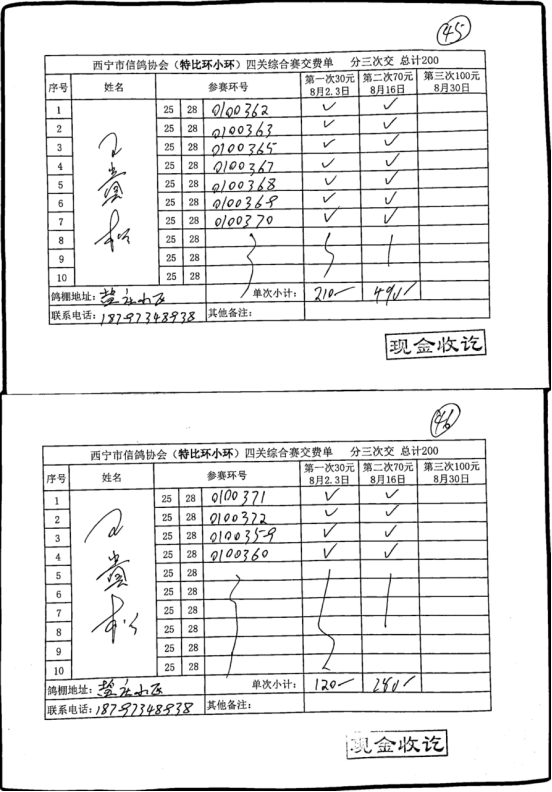 45
西宁市信鸽协会（特比环小环）四关综合赛交费单 分三次交 总计200
序号 姓名 参赛环号 第一次30元 8月2.3日 第二次70元 8月16日 第三次100元 8月30日
1 25 28 0100362 ✓ ✓
2 25 28 0100363 ✓ ✓
3 25 28 0100365 ✓ ✓
4 25 28 0100367 ✓ ✓
5 25 28 0100368 ✓ ✓
6 25 28 0100369 ✓ ✓
7 25 28 0100370 ✓ ✓
8 25 28
9 25 28
10 25 28
鸽棚地址： 小区 单次小计： 210 490
联系电话：18797348938 其他备注：
现金收讫
46
西宁市信鸽协会（特比环小环）四关综合赛交费单 分三次交 总计200
序号 姓名 参赛环号 第一次30元 8月2.3日 第二次70元 8月16日 第三次100元 8月30日
1 25 28 0100371 ✓ ✓
2 25 28 0100372 ✓ ✓
3 25 28 0100359 ✓ ✓
4 25 28 0100360 ✓ ✓
5 25 28
6 25 28
7 25 28
8 25 28
9 25 28
10 25 28
鸽棚地址： 小区 单次小计： 120 280
联系电话：18797348938 其他备注：
现金收讫